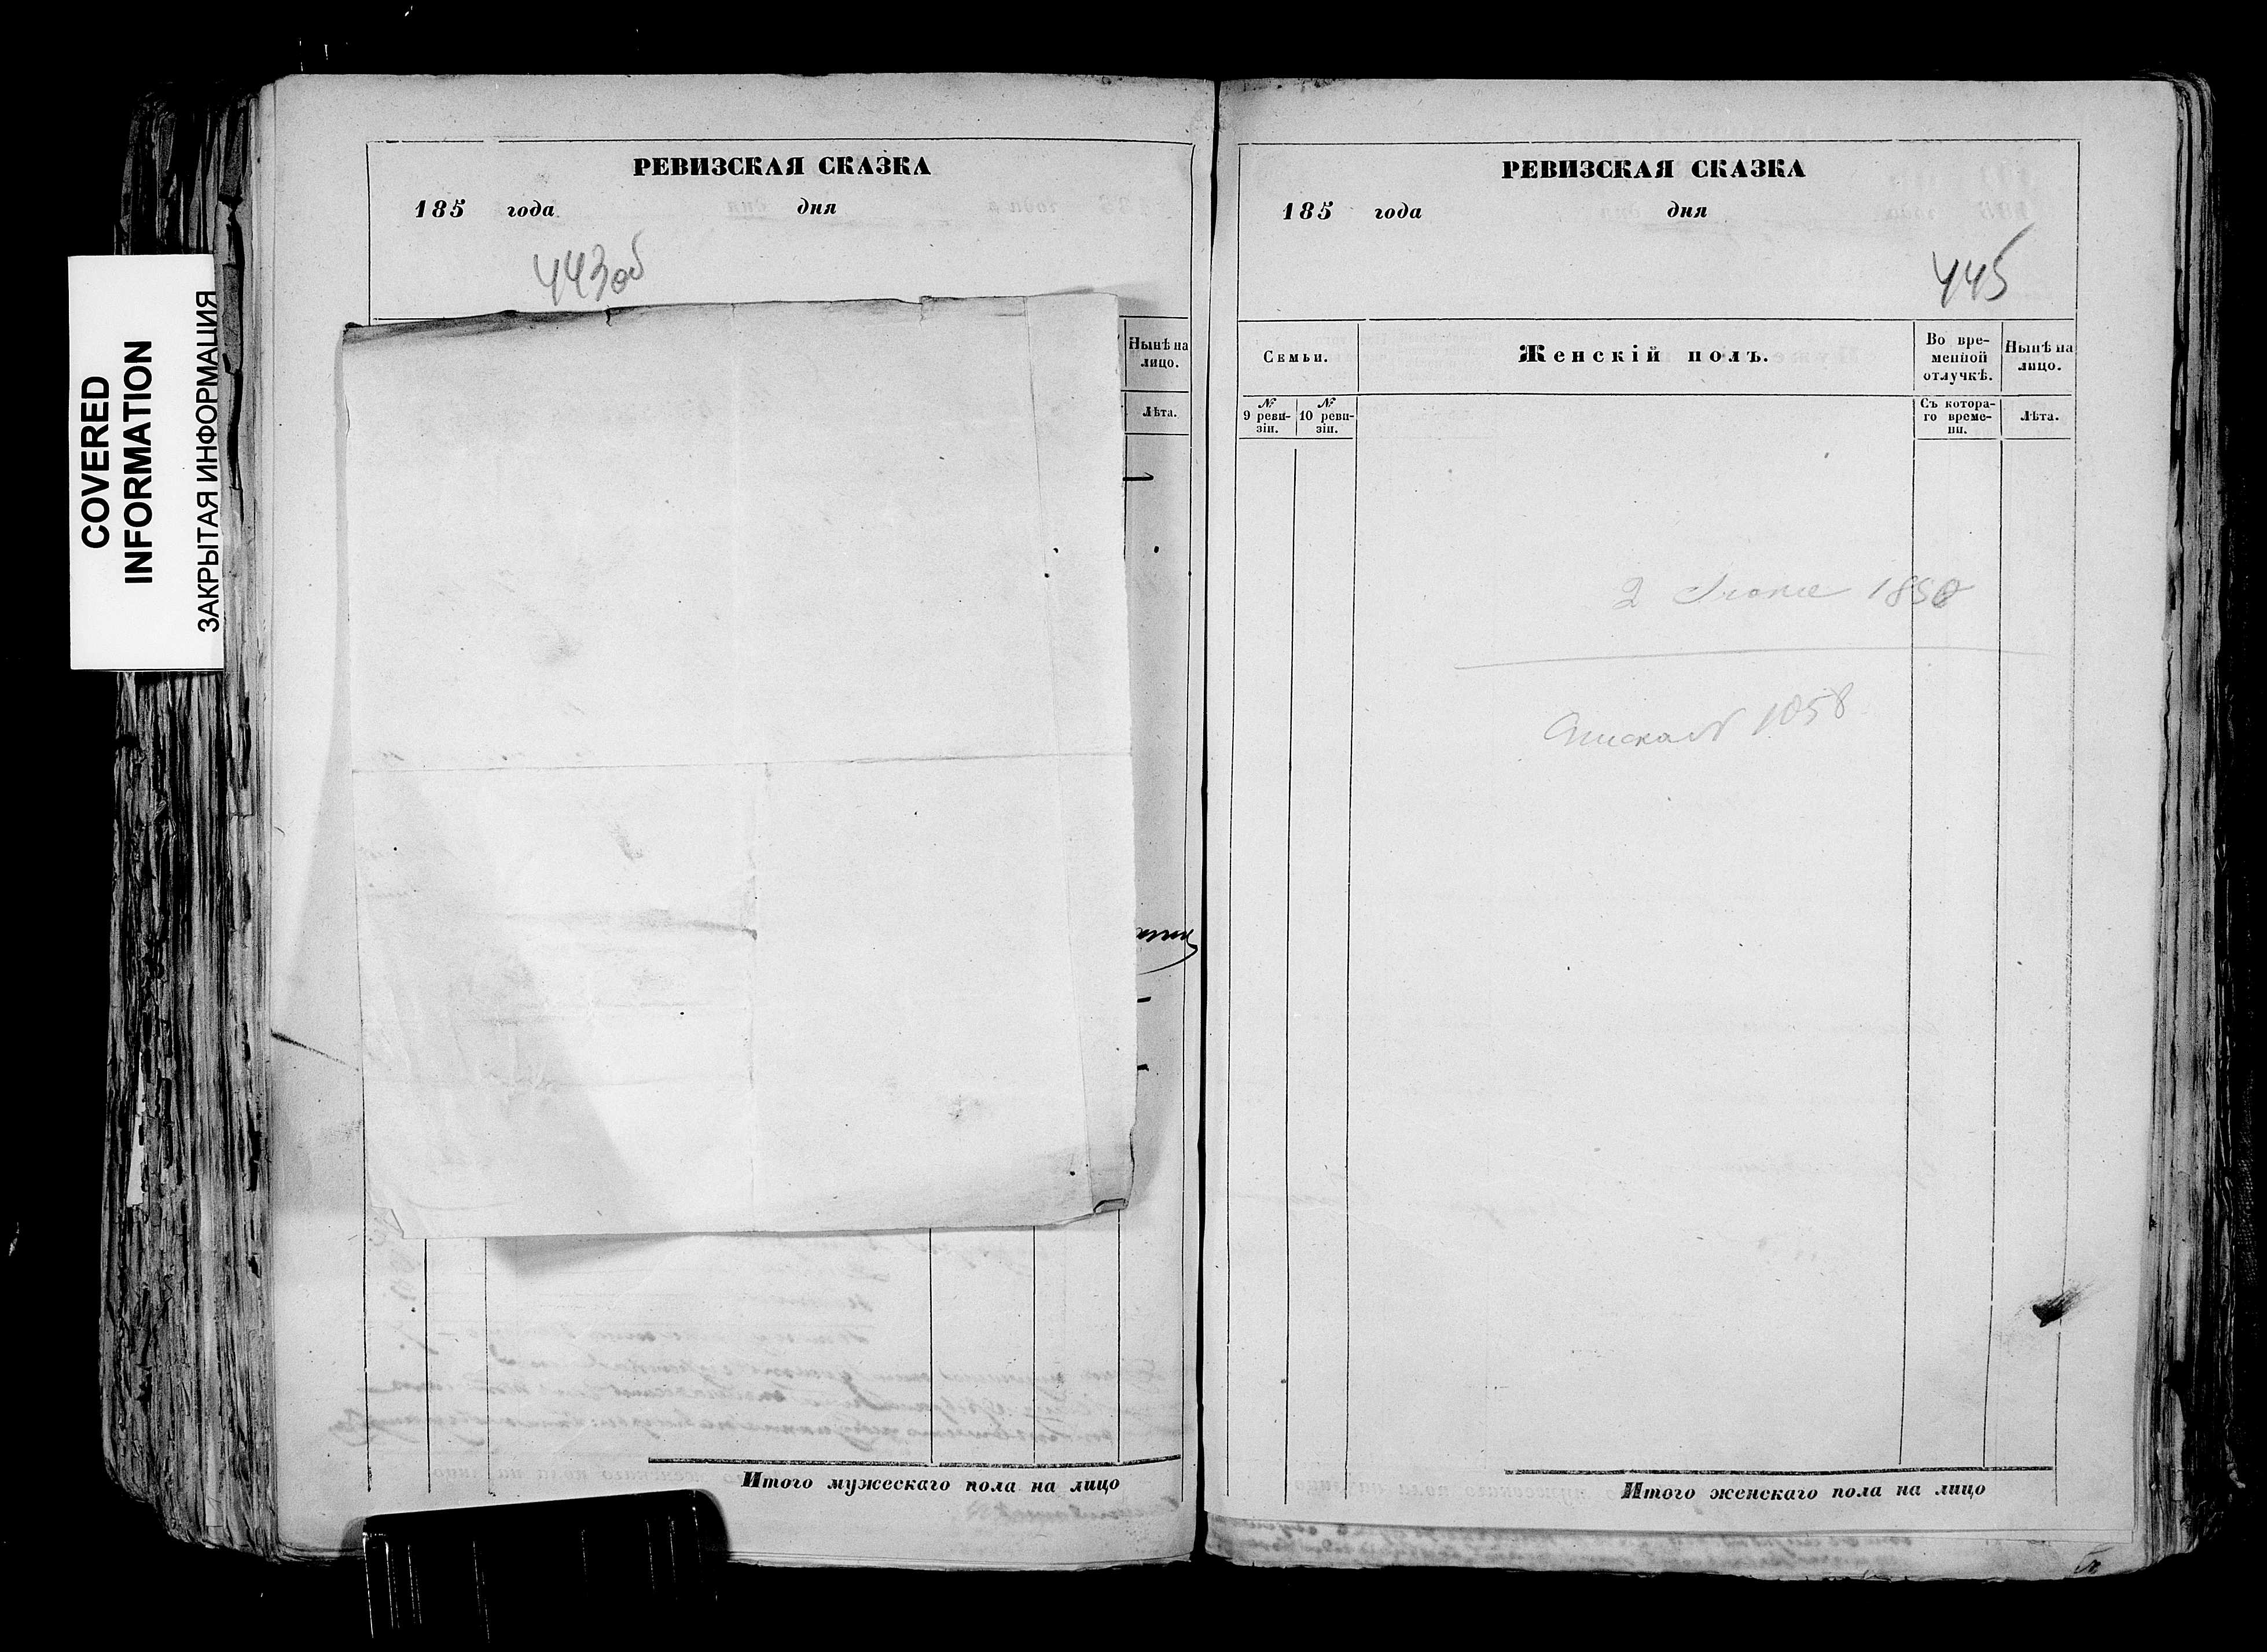 COVERED
INFORMATION
ЗАКРЫТАЯ ИНФОРМАЦИЯ
РЕВИЗСКАЯ СКАЗКА
185 года дня
443об
Нынѣ на
лицо.
Лѣта.
Итого мужескаго пола на лицо
РЕВИЗСКАЯ СКАЗКА
185 года дня
445
Семьи.
Женскій полъ.
Во вре-
менной
отлучкѣ.
Нынѣ на
лицо.
№
9 реви-
зіи.
№
10 реви-
зіи.
Съ котора-
го време-
ни.
Лѣта.
2 Іюня 1850
1058
Итого женскаго пола на лицо